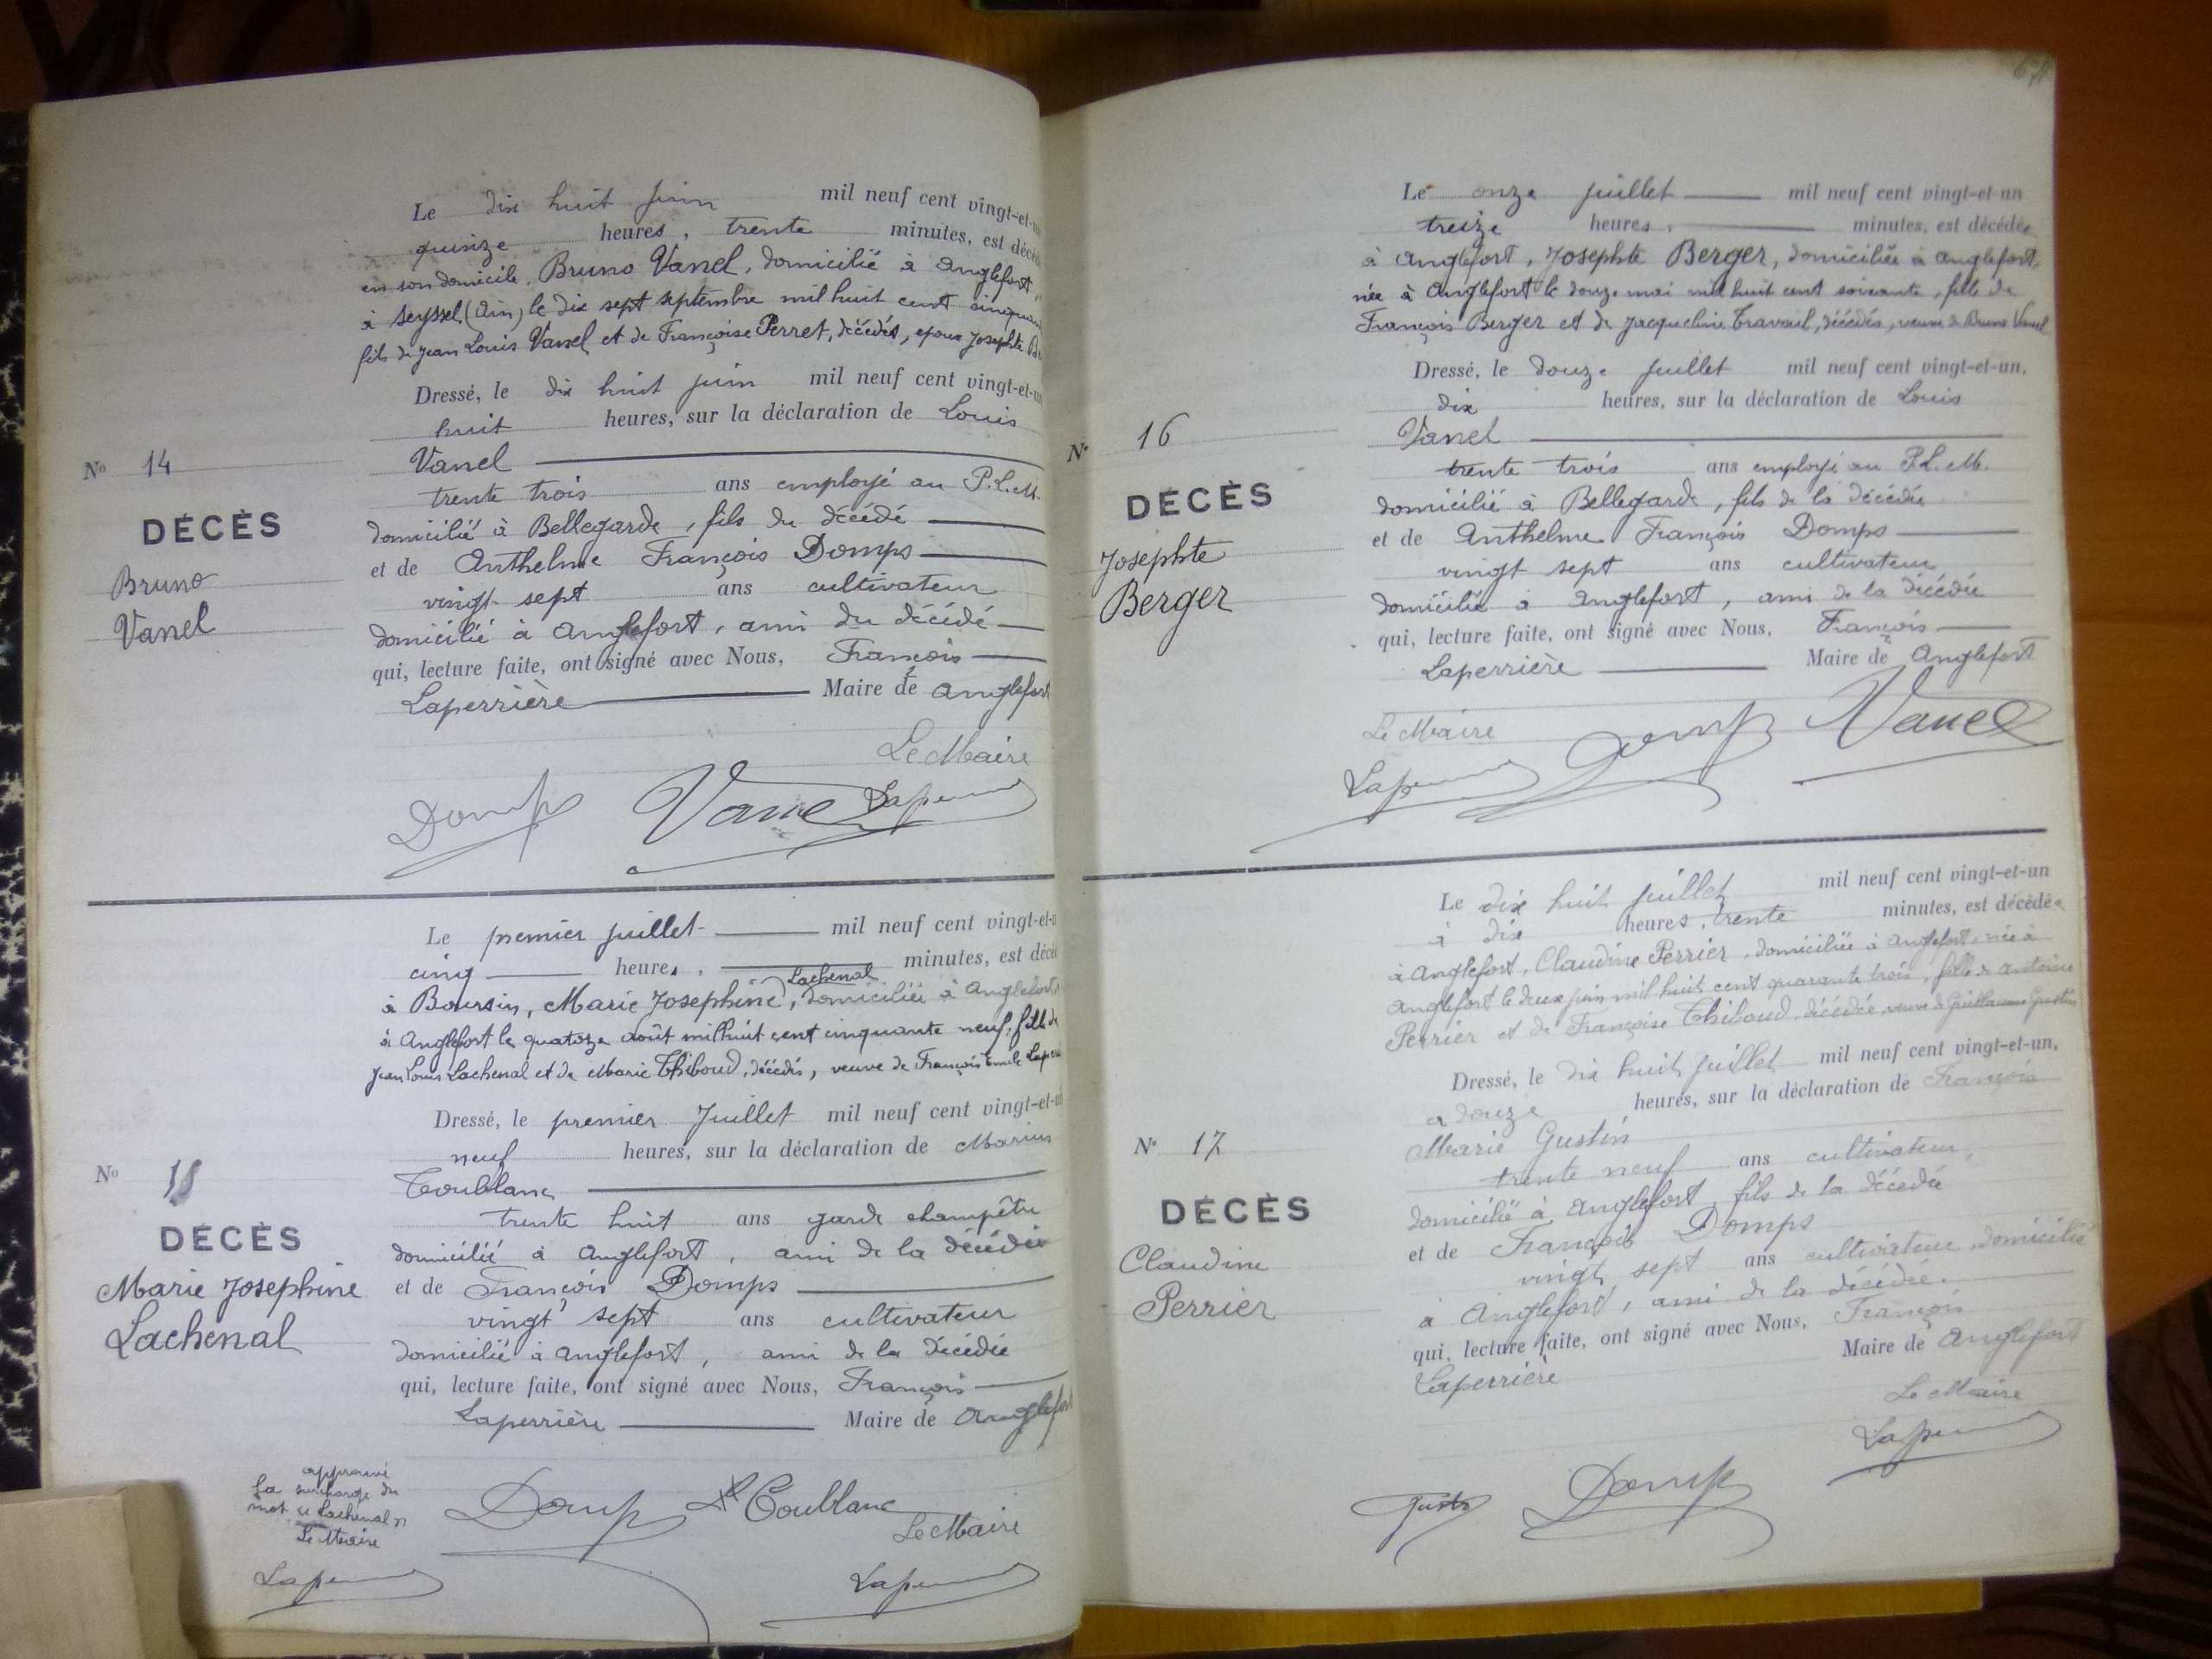 Le dix huit juin mil neuf cent vingt-et-
quinze heures, trente minutes, est décéd
en son domicile, Bruno Vanel, domicilié à Anglefort,
à Seyssel (Ain) le dix sept septembre mil huit cent cinquan
fils de Jean Louis Vanel et de Françoise Perret, décédés, époux Josephte Be
Dressé, le dix huit juin mil neuf cent vingt-et-u
huit heures, sur la déclaration de Louis
Vanel
trente trois ans employé au P.L.M.
domicilié à Bellegarde, fils du décédé
et de Anthelme François Domps
vingt-sept ans cultivateur
domicilié à Anglefort, ami du décédé
qui, lecture faite, ont signé avec Nous, François
Laperrière Maire de Anglefort
Le Maire
Domps Vanel
No 14
DÉCÈS
Bruno
Vanel
Le premier juillet mil neuf cent vingt-et-u
cinq heures, minutes, est décéd
Lachenal
à Boursin, Marie Josephine, domiciliée à Anglefort
à Anglefort le quatorze août mil huit cent cinquante neuf, fille de
Jean Louis Lachenal et de Marie Thiboud, décédés, veuve de François Emile Laper
Dressé, le premier Juillet mil neuf cent vingt-et-u
neuf heures, sur la déclaration de Marius
Coublanc
trente huit ans garde champêtre
domicilié à Anglefort, ami de la décédée
et de François Domps
vingt sept ans cultivateur
domicilié à Anglefort, ami de la décédée
qui, lecture faite, ont signé avec Nous, François
Laperrière Maire de Anglefort
No 15
DÉCÈS
Marie Josephine
Lachenal
approuvé
la surcharge du
mot "Lachenal"
Le Maire
Domps Coublanc
Le Maire
Le onze juillet mil neuf cent vingt-et-un
treize heures, minutes, est décédée
à Anglefort, Josephte Berger, domiciliée à Anglefort,
née à Anglefort le douze mai mil huit cent soixante, fille de
François Berger et de Jacqueline Travail, décédés, veuve de Bruno Vanel
Dressé, le douze juillet mil neuf cent vingt-et-un,
dix heures, sur la déclaration de Louis
Vanel
trente trois ans employé au P.L.M.
domicilié à Bellegarde, fils de la décédée
et de Anthelme François Domps
vingt sept ans cultivateur
domicilié à Anglefort, ami de la décédée
qui, lecture faite, ont signé avec Nous, François
Laperrière Maire de Anglefort
Le Maire Domps Vanel
No 16
DÉCÈS
Josephte
Berger
Le dix huit juillet mil neuf cent vingt-et-un
à dix heures, trente minutes, est décédée
à Anglefort, Claudine Perrier, domiciliée à Anglefort, née à
Anglefort le deux juin mil huit cent quarante trois, fille de Antoine
Perrier et de Françoise Thiboud, décédée, veuve de Guillaume Gustin
Dressé, le dix huit juillet mil neuf cent vingt-et-un,
a douze heures, sur la déclaration de François
Marie Gustin
trente neuf ans cultivateur,
domicilié à Anglefort, fils de la décédée
et de François Domps
vingt sept ans cultivateur, domicilié
à Anglefort, ami de la décédée.
qui, lecture faite, ont signé avec Nous, François
Laperrière Maire de Anglefort
Le Maire
Domps
No 17
DÉCÈS
Claudine
Perrier